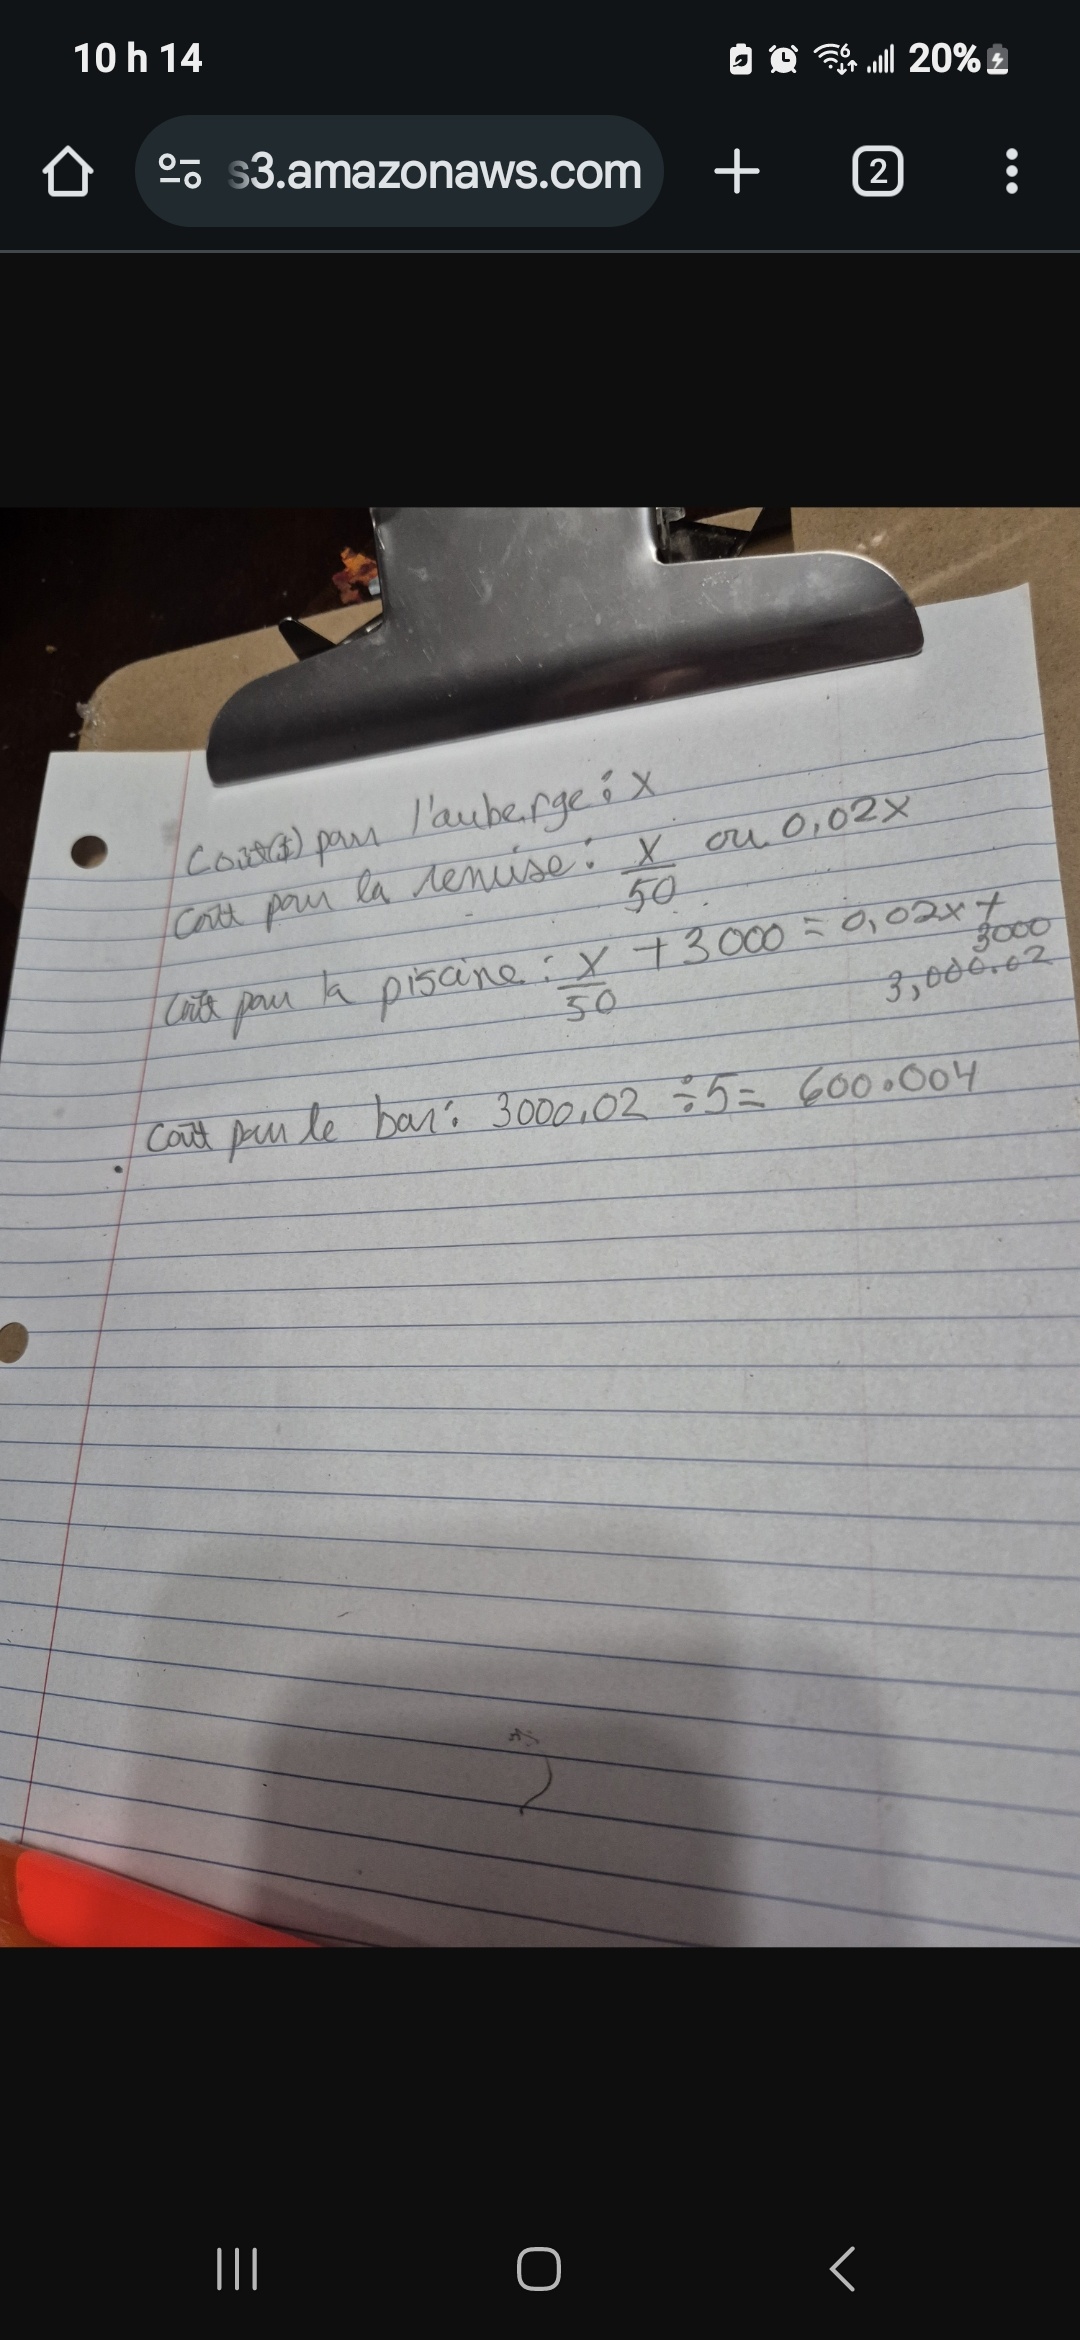 10 h 14
6
20%
s3.amazonaws.com
2
Coût($) pour l'auberge : x
Coût pour la remise : x/50 ou 0,02x
Coût pour la piscine : x/50 + 3000 = 0,02x +
3000
3,000.02
Coût pour le bar : 3000,02 ÷ 5 = 600.004